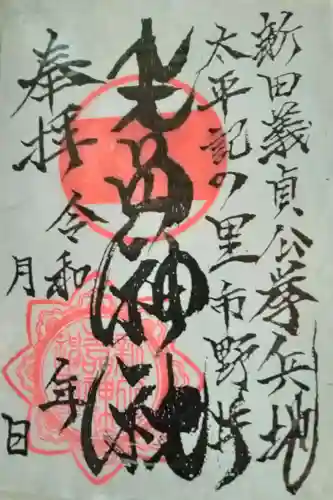 新田義貞公挙兵地
太平記の里市野井
生品神社
奉拝
令和 年
月 日